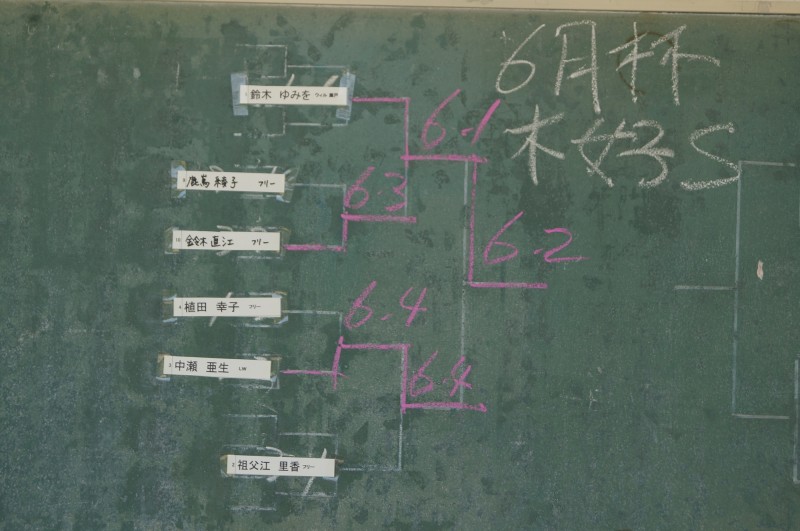 6月杯
木好S
鈴木 ゆみを
6-1
鹿蔦 綾子 フリー
6-3
鈴木 直江 フリー
6-2
植田 幸子 フリー
6-4
中瀬 亜生
6-4
祖父江 里香 フリー